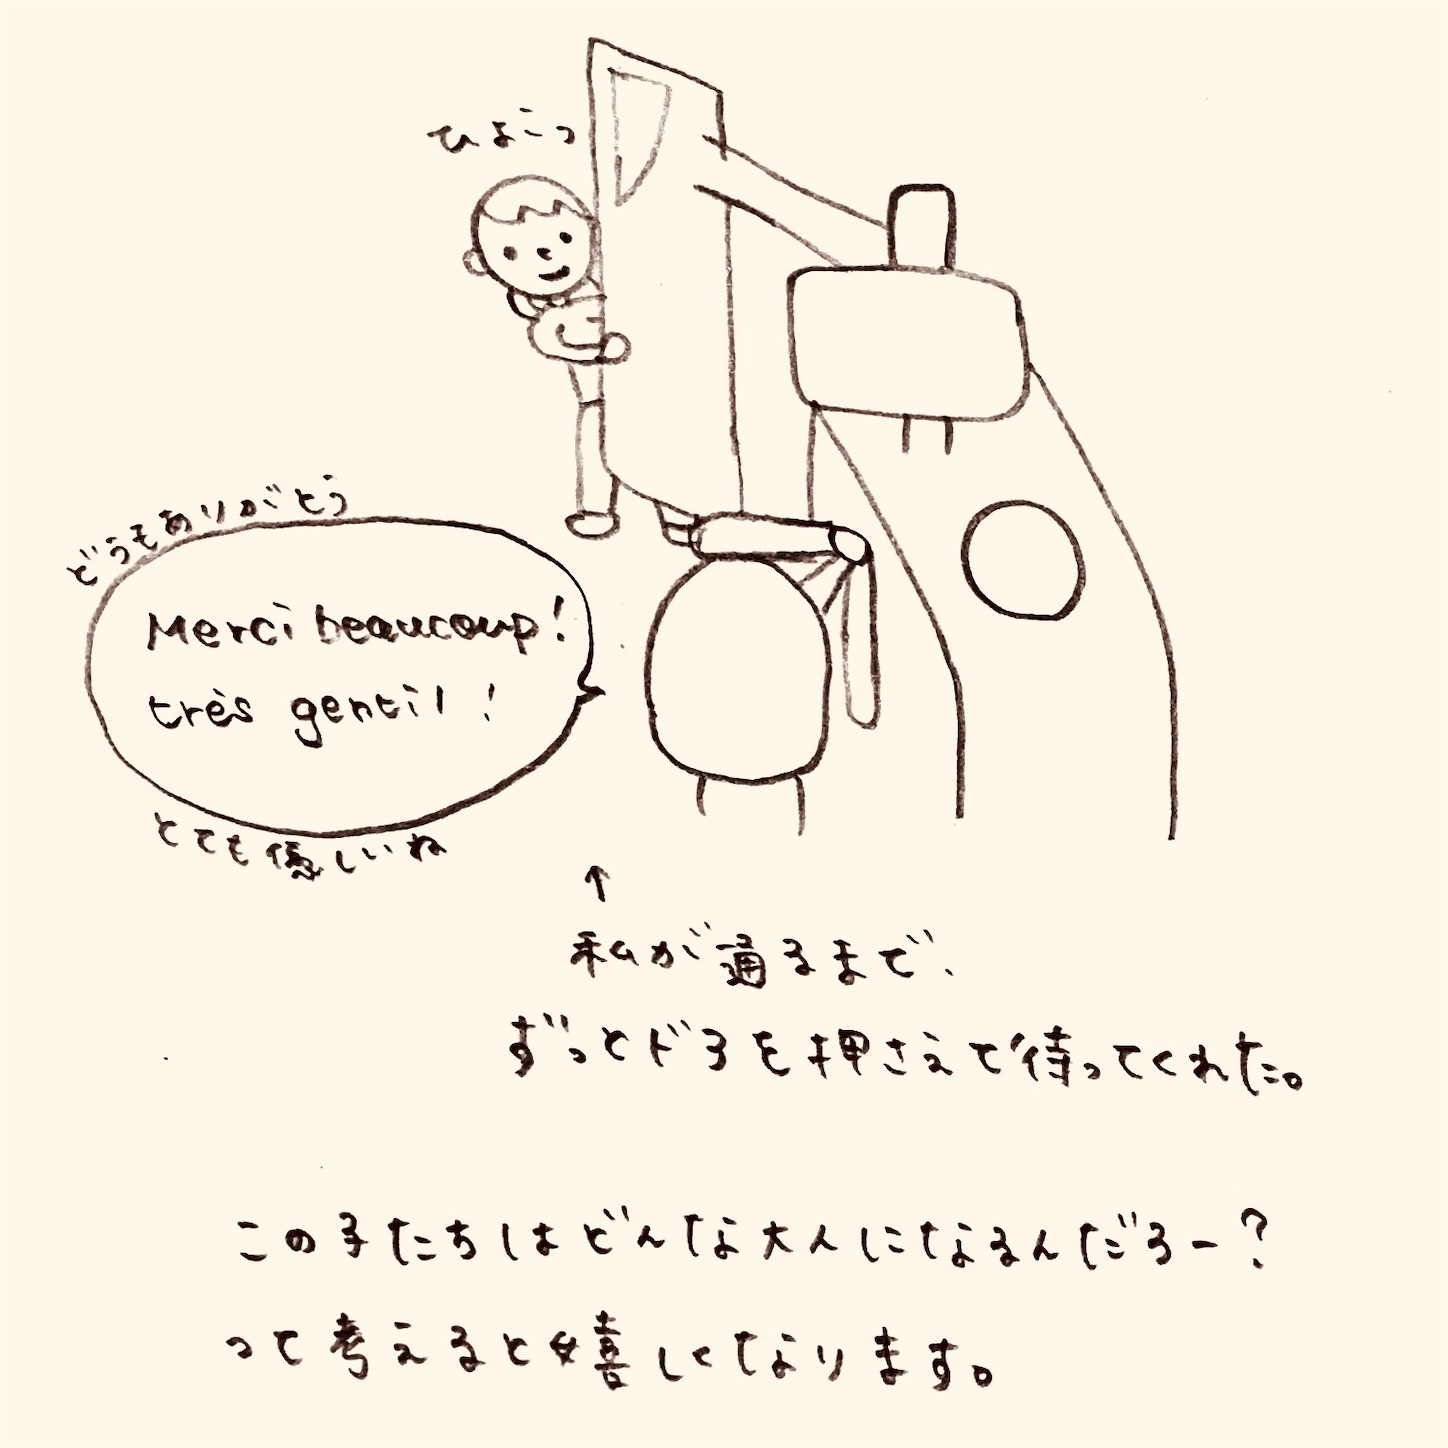 ひょこっ
どうもありがとう
Merci beaucoup!
très gentil!
とても優しいね
↑
私が通るまで、
ずっとドアを押さえて待ってくれた。
この子たちはどんな大人になるんだろー?
って考えると嬉しくなります。